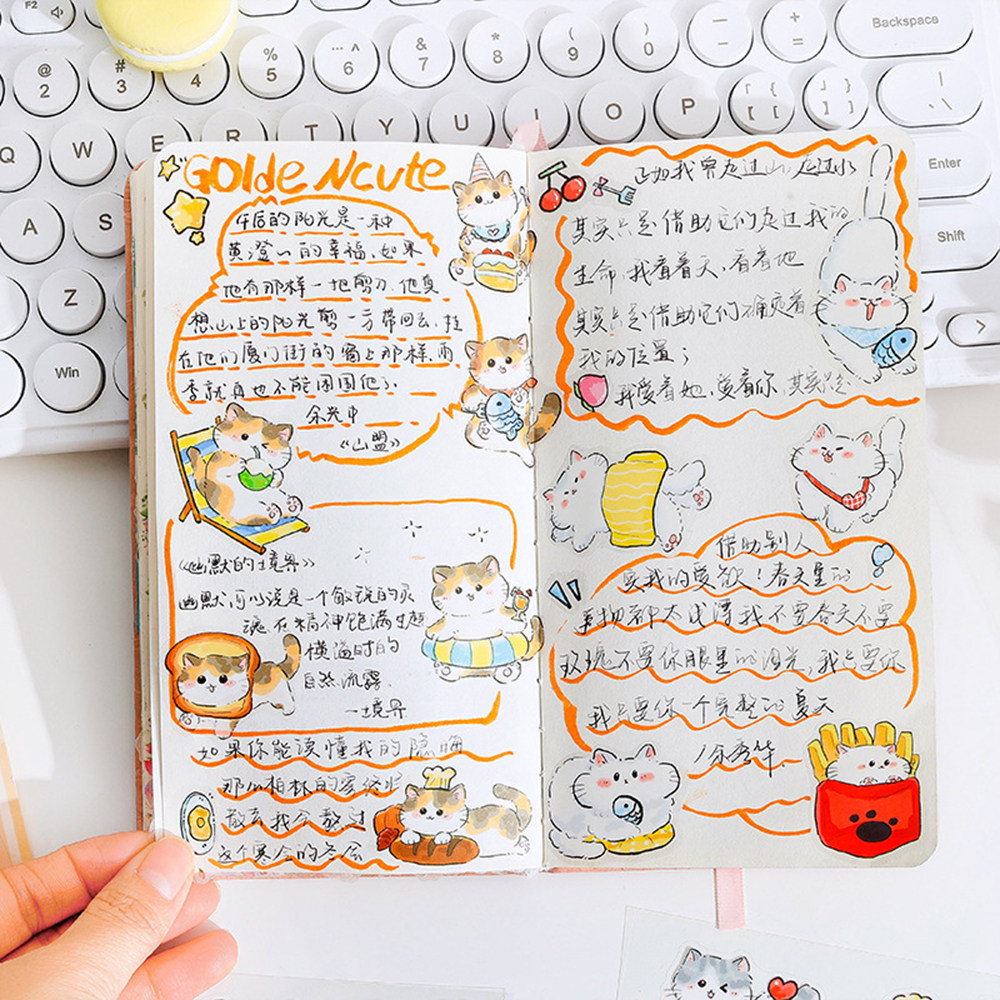 F2
Backspace
@ 2
# 3
4
% 5
^ 6
& 7
* 8
( 9
) 0
— –
+ =
Q
W
E
R
T
Y
U
I
O
P
Enter
A
S
Shift
Z
Win
GOldeNcute
午后的阳光是一种
黄澄々的幸福.如果
也有那样一把剪刀.他真
想山上的阳光剪一方带回去.挂
在他们厦门街的窗上那样.雨
季就再也不能困围他了
余光中
《山盟》
《幽默的境界》
幽默,可以说是一个敏锐的灵
魂在精神饱满生趣
横溢时的
自然流露
一境界
如果你能读懂我的隐晦
那么 的爱终
散去我会熬过
这个寒冷的冬
如我曾走过山,走过水
其实只是借助它们走过我的
生命 我看着天,看着地
其实只是借助它们确定着
我的位置;
我爱着她,爱着你,其实只是
借助别人
实我的爱欲!春天里的
事物都太浅薄我不要春天不要
玫瑰不要你眼里的泪光,我只要你
我只要你一个完整的夏天
余秀华